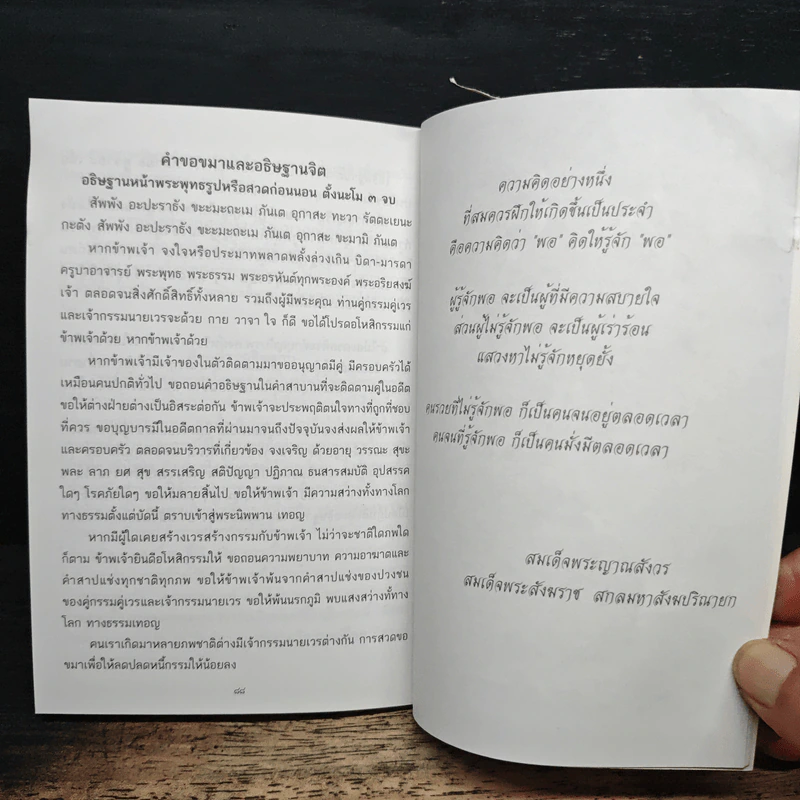 คำขอขมาและอธิษฐานจิต
อธิษฐานหน้าพระพุทธรูปหรือสวดก่อนนอน ตั้งนะโม ๓ จบ
สัพพัง อะปะราธัง ขะมะถะเม ภันเต อุกาสะ ทะวา รัตตะเยนะ
กะตัง สัพพัง อะปะราธัง ขะมะถะเม ภันเต อุกาสะ ขะมามิ ภันเต
หากข้าพเจ้า จงใจหรือประมาทพลาดพลั้งล่วงเกิน บิดา-มารดา
ครูบาอาจารย์ พระพุทธ พระธรรม พระอรหันต์ทุกพระองค์ พระอริยสงฆ์
เจ้า ตลอดจนสิ่งศักดิ์สิทธิ์ทั้งหลาย รวมถึงผู้มีพระคุณ ท่านคู่กรรมคู่เวร
และเจ้ากรรมนายเวรจะด้วย กาย วาจา ใจ ก็ดี ขอได้โปรดอโหสิกรรมแก่
ข้าพเจ้าด้วย หากข้าพเจ้าด้วย
หากข้าพเจ้ามีเจ้าของในตัวติดตามมาขออนุญาตมีคู่ มีครอบครัวได้
เหมือนคนปกติทั่วไป ขอถอนคำอธิษฐานในคำสาบานที่จะติดตามคู่ในอดีต
ขอให้ต่างฝ่ายต่างเป็นอิสระต่อกัน ข้าพเจ้าจะประพฤติตนใจทางที่ถูกที่ชอบ
ที่ควร ขอบุญบารมีในอดีตกาลที่ผ่านมาจนถึงปัจจุบันจงส่งผลให้ข้าพเจ้า
และครอบครัว ตลอดจนบริวารที่เกี่ยวข้อง จงเจริญ ด้วยอายุ วรรณะ สุขะ
พละ ลาภ ยศ สุข สรรเสริญ สติปัญญา ปฏิภาณ ธนสารสมบัติ อุปสรรค
ใดๆ โรคภัยใดๆ ขอให้มลายสิ้นไป ขอให้ข้าพเจ้า มีความสว่างทั้งทางโลก
ทางธรรมตั้งแต่บัดนี้ ตราบเข้าสู่พระนิพพาน เทอญ
หากมีผู้ใดเคยสร้างเวรสร้างกรรมกับข้าพเจ้า ไม่ว่าจะชาติใดภพใด
ก็ตาม ข้าเจ้ายินดีอโหสิกรรมให้ ขอถอนความพยาบาท ความอาฆาตและ
คำสาปแช่งทุกชาติทุกภพ ขอให้ข้าพเจ้าพ้นจากคำสาปแช่งของปวงชน
ของคู่กรรมคู่เวรและเจ้ากรรมนายเวร ขอให้พ้นนรกภูมิ พบแสงสว่างทั้ทาง
โลก ทางธรรมเทอญ
คนเราเกิดมาหลายภพชาติต่างมีเจ้ากรรมนายเวรต่างกัน การสวดขอ
ขมาเพื่อให้ลดปลดหนี้กรรมให้น้อยลง
๘๘
ความคิดอย่างหนึ่ง
ที่สมควรฝึกให้เกิดขึ้นเป็นประจำ
คือความคิดว่า "พอ" คิดให้รู้จัก "พอ"
ผู้รู้จักพอ จะเป็นผู้ที่มีความสบายใจ
ส่วนผู้ไม่รู้จักพอ จะเป็นผู้เร่าร้อน
แสวงหาไม่รู้จักหยุดยั้ง
คนรวยที่ไม่รู้จักพอ ก็เป็นคนจนอยู่ตลอดเวลา
คนจนที่รู้จักพอ ก็เป็นคนมั่งมีตลอดเวลา
สมเด็จพระญาณสังวร
สมเด็จพระสังฆราช สกลมหาสังฆปริณายก